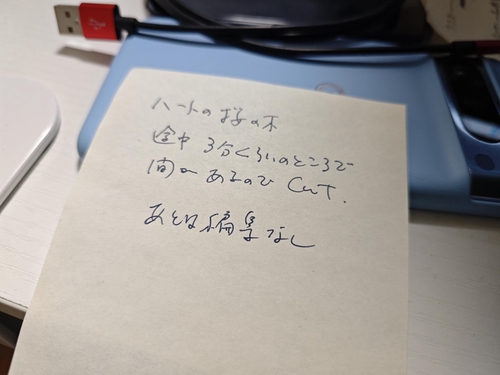 ハートの桜の木
途中 3分くらいのところで
間があるので CuT.
あとは編集なし